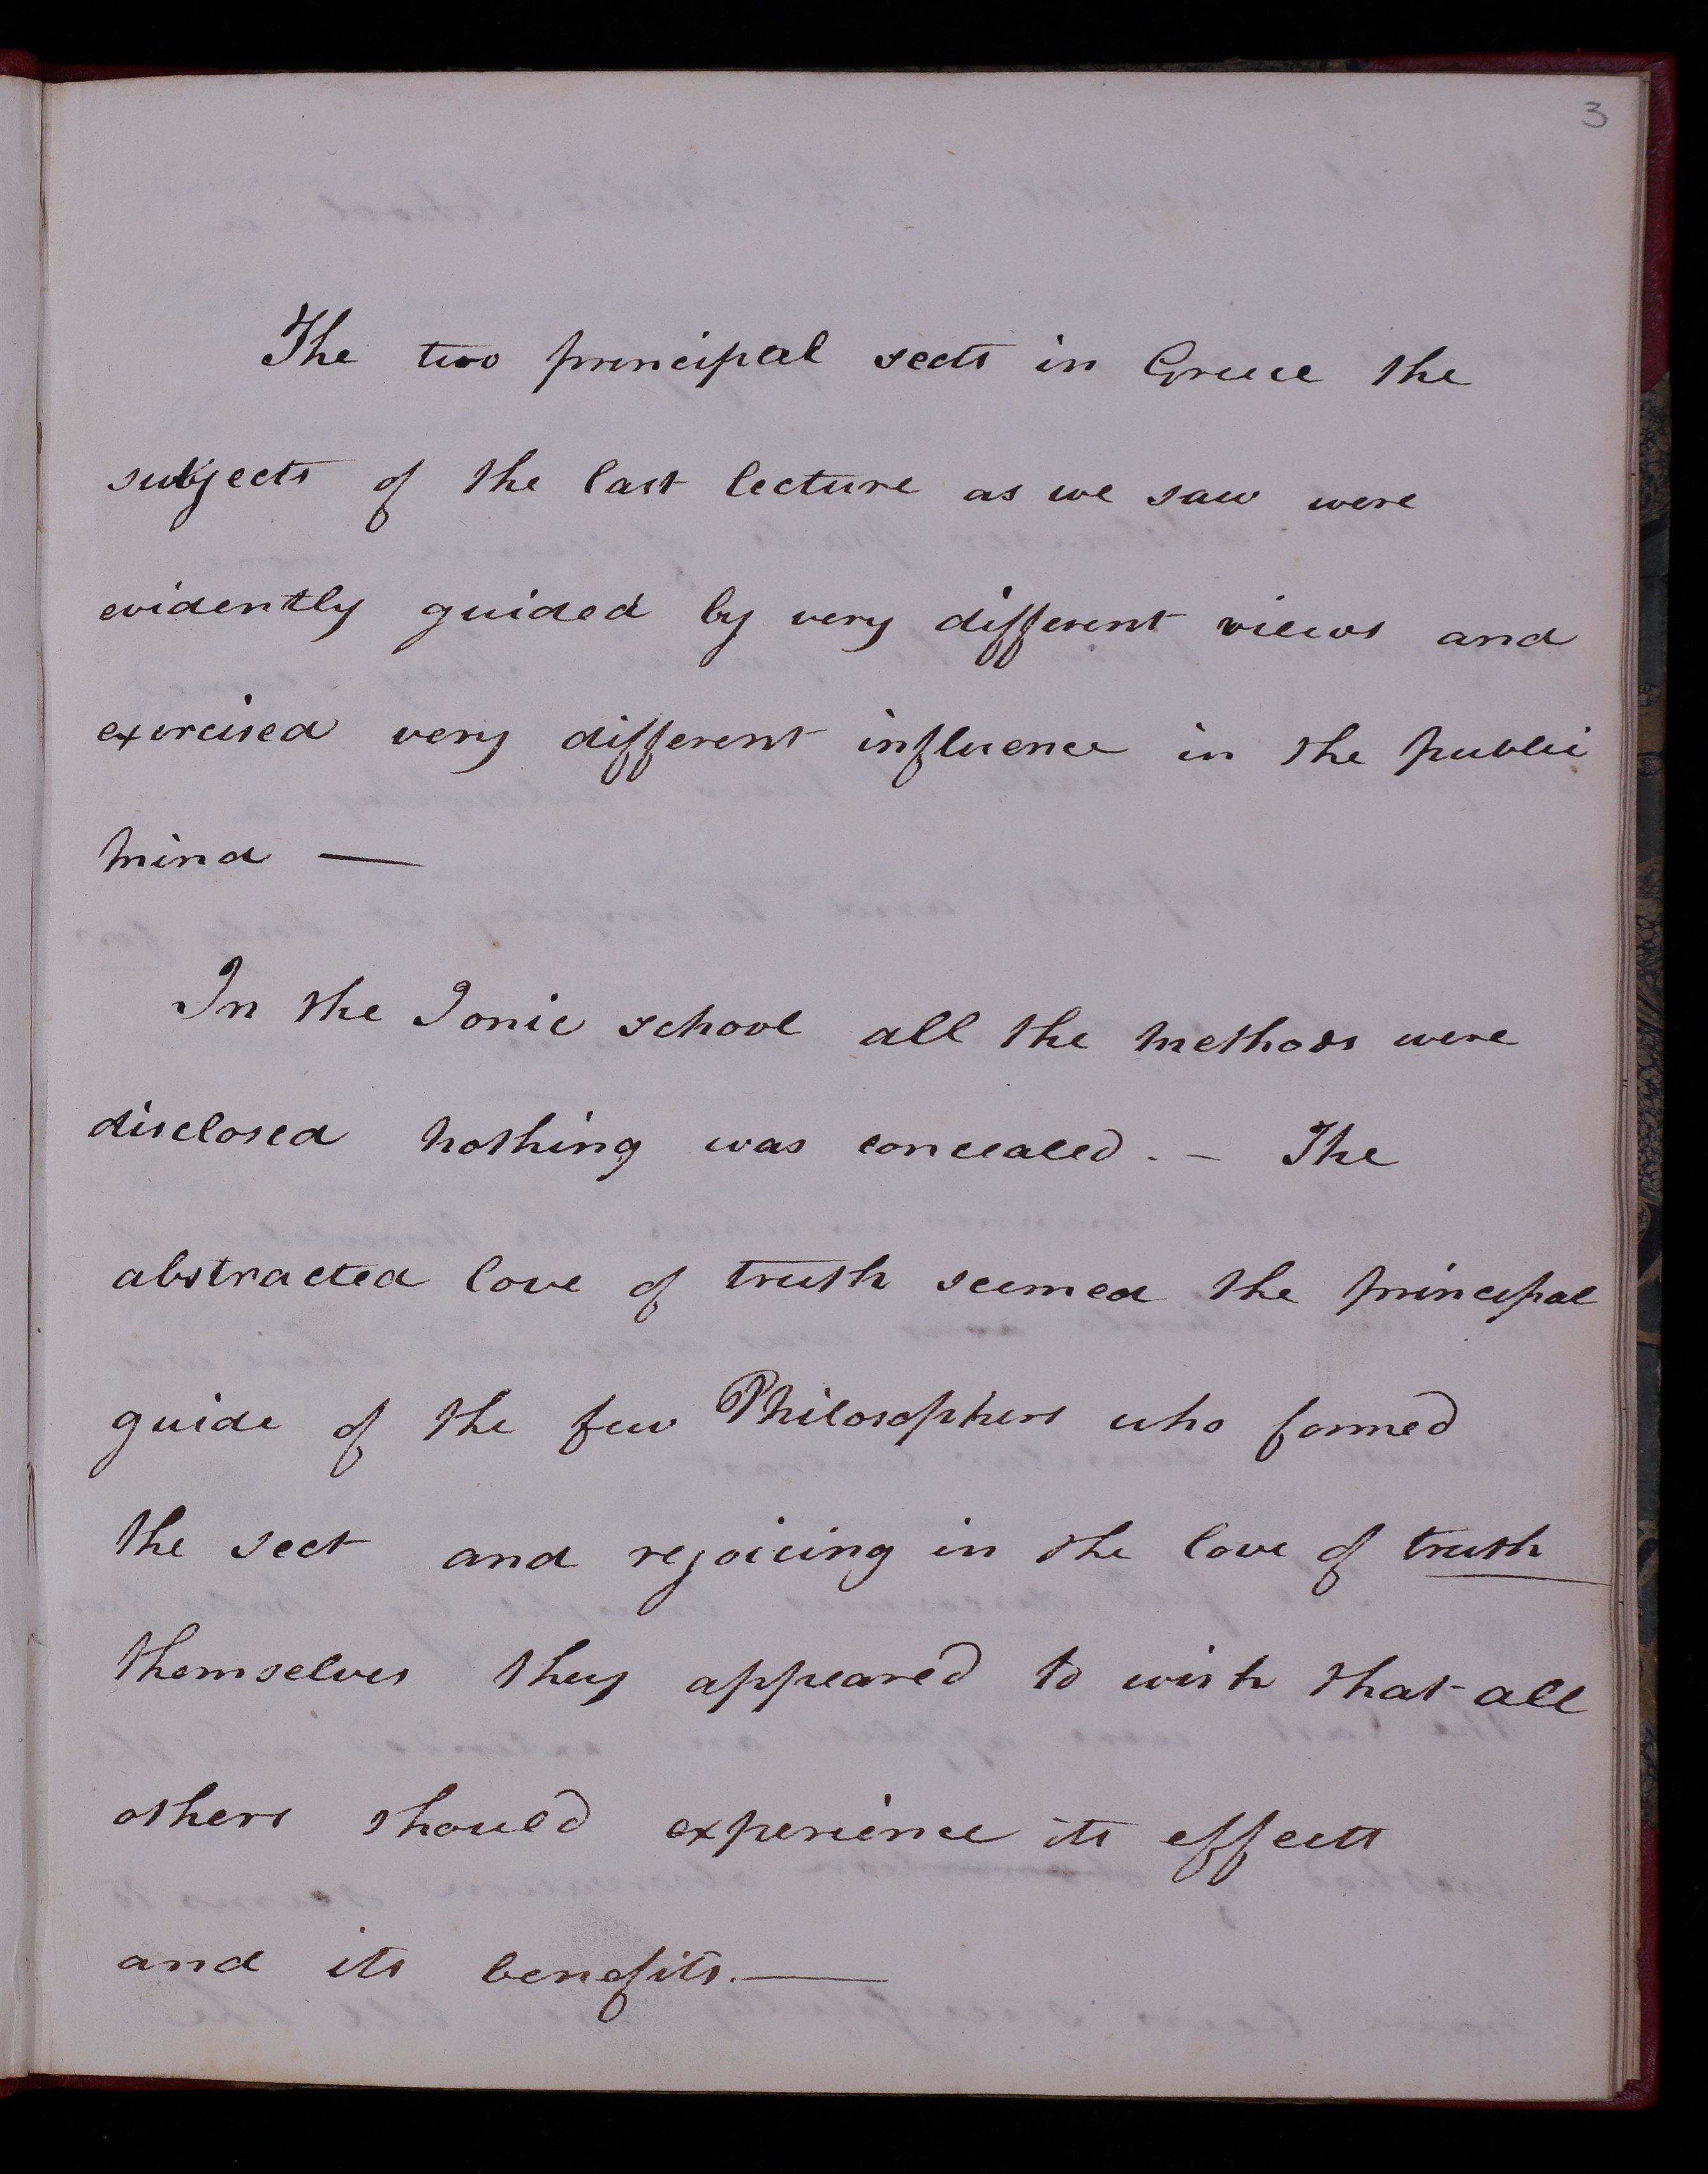 3
The two principal sects in Greece the
subjects of the last lecture as we saw were
evidently guided by very different views and
exercised very different influence in the public
mind —
In the Ionic school all the methods were
disclosed nothing was concealed. – The
abstracted love of truth seemed the principal
guide of the few Philosophers who formed
the sect and rejoicing in the love of truth
themselves they appeared to wish that all
others should experience its effects
and its benefits. —